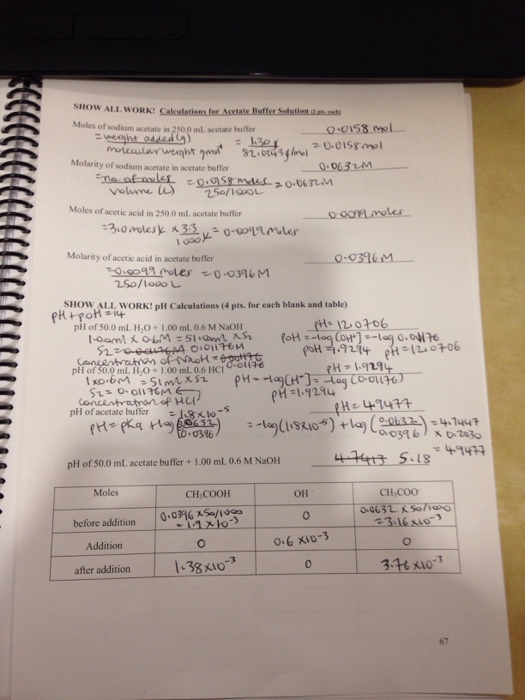 SHOW ALL WORK! Calculations for Acetate Buffer Solution
Moles of sodium acetate in 250.0 mL acetate buffer 0.0158 mol
= weight added (g) = 1.30 g = 0.0158 mol
molecular weight gmol⁻¹ 82.0343 g/mol
Molarity of sodium acetate in acetate buffer 0.0632M
= no. of moles = 0.0158 moles = 0.0632M
volume (L) 250/1000L
Moles of acetic acid in 250.0 mL acetate buffer 0.0099 moles
= 3.0 moles/L × 3.3 L = 0.0099 moles
1000
Molarity of acetic acid in acetate buffer 0.0396M
= 0.0099 moles = 0.0396M
250/1000 L
SHOW ALL WORK! pH Calculations (4 pts. for each blank and table)
pH + pOH = 14
pH of 50.0 mL H₂O + 1.00 mL 0.6 M NaOH pH = 12.0706
1.00ml × 0.6M = 51.00ml × S2 pOH = -log [OH⁻] = -log 0.01176
S2 = 0.01176M pOH = 1.9294 pH = 12.0706
Concentration of NaOH = 0.01176
pH of 50.0 mL H₂O + 1.00 mL 0.6 M HCl pH = 1.9294
1×0.6M = 51mL × S2 pH = -log[H⁺] = -log (0.01176)
S2 = 0.01176M pH = 1.9294
Concentration of HCl
pH of acetate buffer = 1.8×10⁻⁵ pH = 4.9477
pH = pKa + log (0.0632) = -log(1.8×10⁻⁵) + log (0.0632) = 4.7447
(0.0396) 0.0396 × 0.2030
= 4.9477
pH of 50.0 mL acetate buffer + 1.00 mL 0.6 M NaOH 5.18
Moles CH₃COOH OH⁻ CH₃COO⁻
before addition 0.0396 × 50/1000 = 1.9 × 10⁻³ 0 0.0632 × 50/1000 = 3.16×10⁻³
Addition 0 0.6 ×10⁻³ 0
after addition 1.38×10⁻³ 0 3.76 ×10⁻³
67